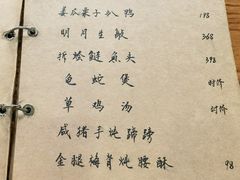 姜瓜栗子扒鸭 198
明月生敲 368
拆烩鲢鱼头 398
龟蛇煲 时价
草鸡汤 时价
咸猪手炖蹄膀
金腿梅肯炖腰酥 98